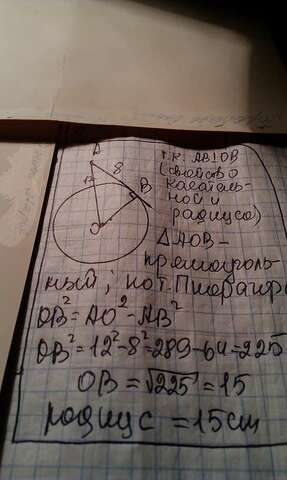 A
8
B
O
т.к. AB⊥OB
(свойство
касатель-
ной и
радиуса)
△AOB –
прямоуголь-
ный, по т. Пифагора
OB² = AO² – AB²
OB² = 12² – 8² = 289 – 64 = 225
OB = √225 = 15
радиус = 15 см